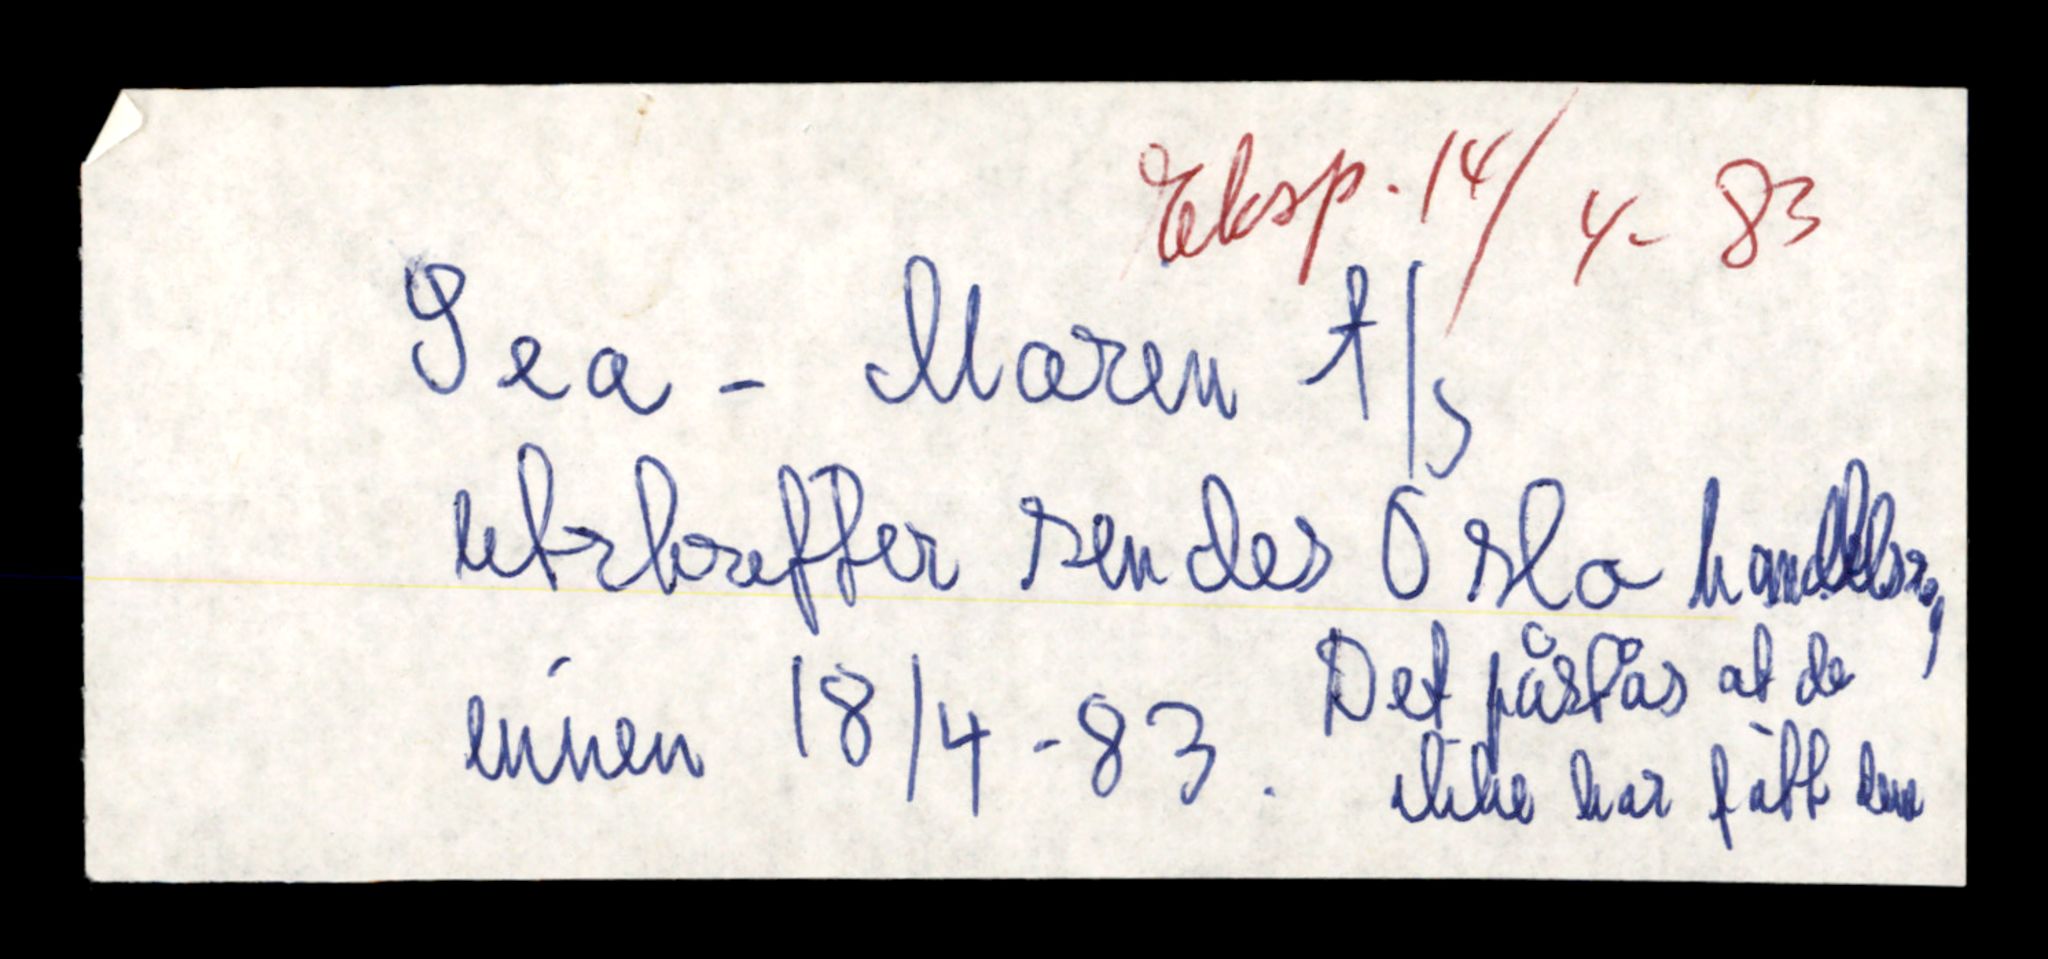 Eksp. 14/4-83
Sea - Maren A/S
utskrifter sendes Oslo handelsreg
innen 18/4-83.
Det påstås at de
ikke har fått dem